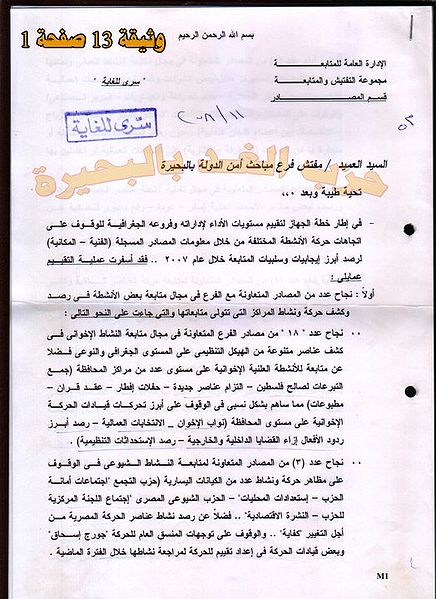 وثيقة 13 صفحة 1
بسم الله الرحمن الرحيم
الإدارة العامة للمتابعة
مجموعة التفتيش والمتابعة
قسم المصادر
" سرى للغاية "
سرى للغاية
٢٠٠٨/١١
٥٣
حزب الغد بالبحيرة
السيد العميد / مفتش فرع مباحث أمن الدولة بالبحيرة
تحية طيبة وبعد ،،،
- في إطار خطة الجهاز لتقييم مستويات الأداء لإداراته وفروعه الجغرافية للوقوف على
اتجاهات حركة الأنشطة المختلفة من خلال معلومات المصادر المسجلة (الفنية – المكانية)
لرصد أبرز إيجابيات وسلبيات المتابعة خلال عام ٢٠٠٧ .. فقد أسفرت عملية التقييم
عمايلى :
أولاً : نجاح عدد من المصادر المتعاونة مع الفرع فى مجال متابعة بعض الأنشطة فى رصد
وكشف حركة ونشاط المراكز التى تتولى متابعاتها والتى جاءت على النحو التالى :
٠٠ نجاح عدد " ١٨ " من مصادر الفرع المتعاونة فى مجال متابعة النشاط الإخوانى فى
كشف عناصر متنوعة من الهيكل التنظيمى على المستوى الجغرافى والنوعى فضلا
عن متابعة للأنشطة العلنية الإخوانية على مستوى عدد من مراكز المحافظة (جمع
التبرعات لصالح فلسطين – التزام عناصر جديدة – حفلات إفطار – عقد قران –
مطبوعات) مما ساهم بشكل نسبى فى الوقوف على أبرز تحركات قيادات الحركة
الإخوانية على مستوى المحافظة (نواب الإخوان – الانتخابات العمالية – رصد أبرز
ردود الأفعال إزاء القضايا الداخلية والخارجية – رصد الإستحداثات التنظيمية) .
٠٠ نجاح عدد (٣) من المصادر المتعاونة لمتابعة النشاط الشيوعى فى الوقوف
على مظاهر حركة ونشاط عدد من الكيانات اليسارية (حزب التجمع "اجتماعات أمانة
الحزب – إستعدادات المحليات" – الحزب الشيوعى المصرى "إجتماع اللجنة المركزية
للحزب – النشرة الاقتصادية" .. فضلاً عن رصد نشاط عناصر الحركة المصرية من
أجل التغيير "كفاية" .. والوقوف على توجهات المنسق العام للحركة "جورج إسحاق"
وبعض قيادات الحركة فى إعداد تقييم للحركة لمراجعة نشاطها خلال الفترة الماضية .
M1